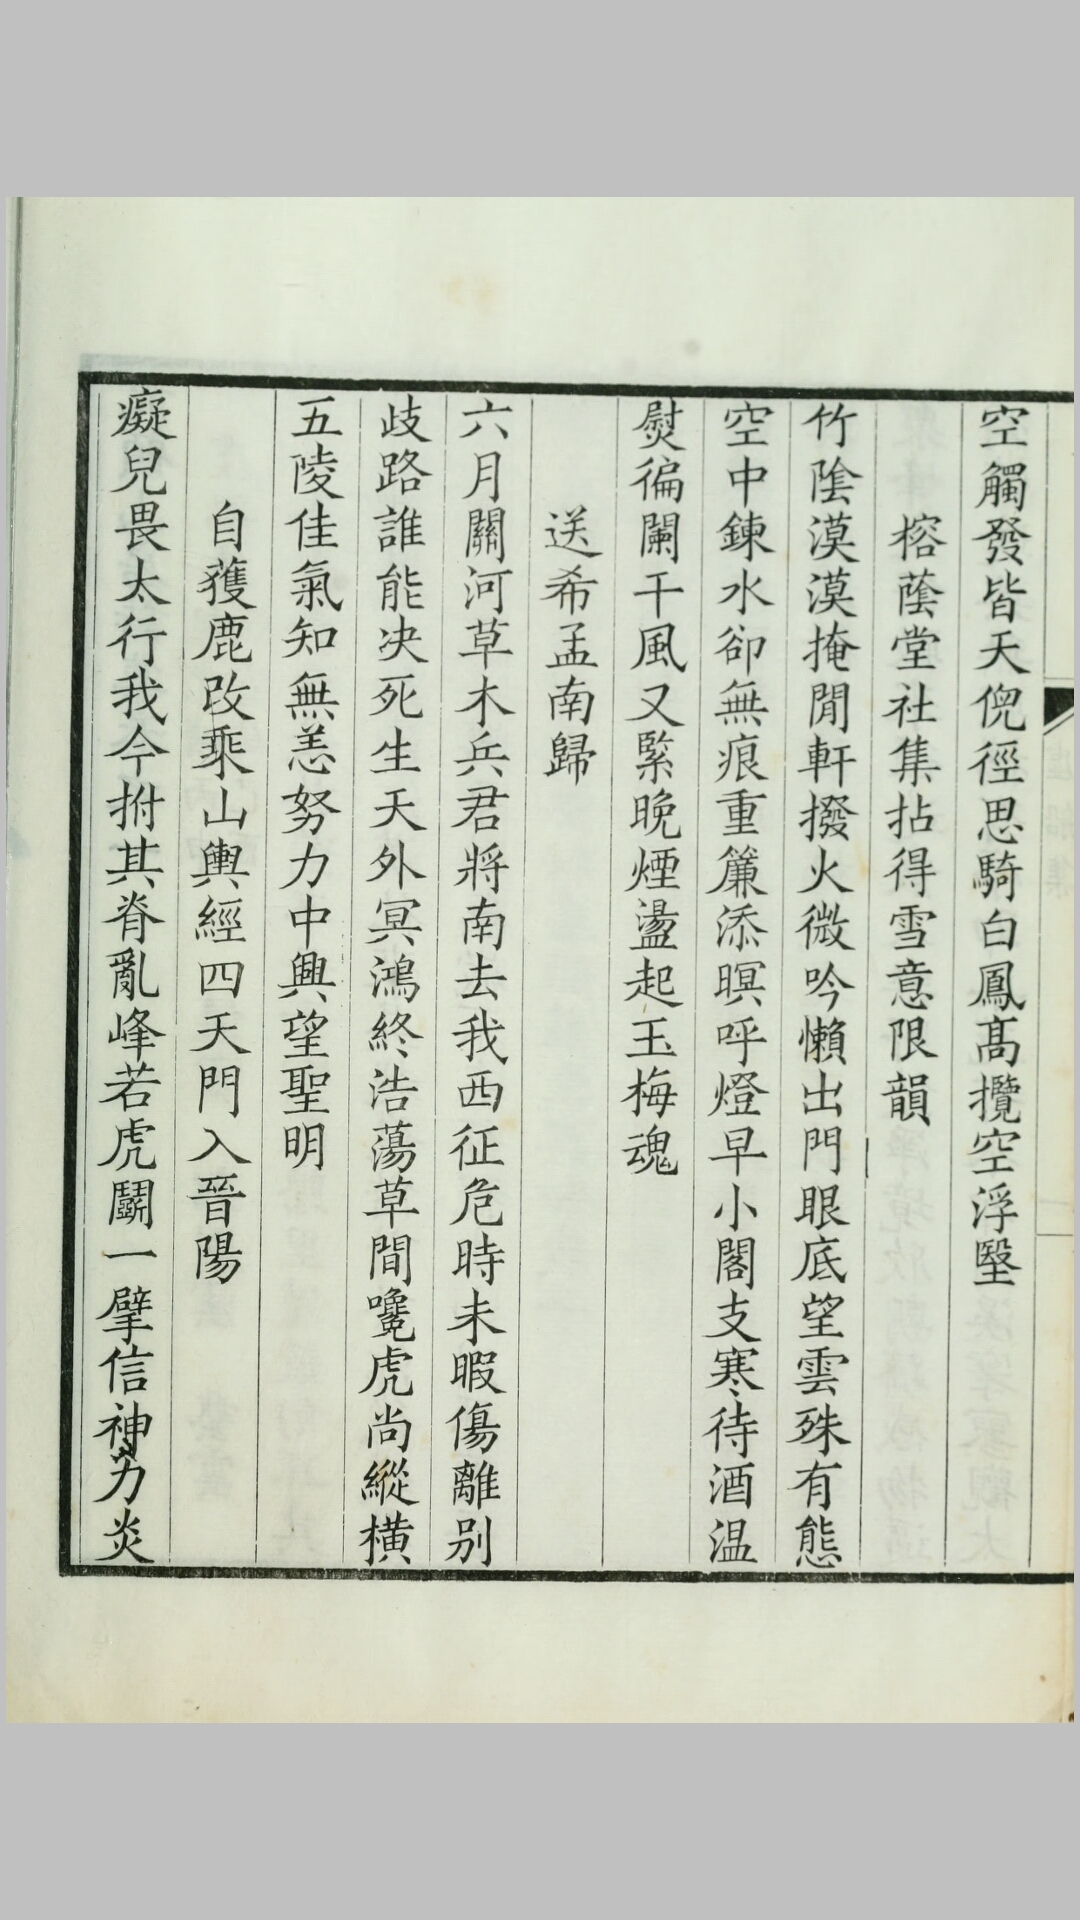 空觸發皆天倪徑思騎白鳳高攬空浮塈
榕蔭堂社集拈得雪意限韻
竹陰漠漠掩閒軒撥火微吟懶出門眼底望雲殊有態
空中鍊水卻無痕重簾添暝呼燈早小閣支寒待酒温
熨徧闌干風又緊晚煙盪起玉梅魂
送希孟南歸
六月關河草木兵君將南去我西征危時未暇傷離别
歧路誰能决死生天外冥鴻終浩蕩草間毚虎尚縱横
五陵佳氣知無恙努力中興望聖明
自獲鹿改乘山輿經四天門入晉陽
癡兒畏太行我今拊其脊亂峰若虎鬭一擘信神力炎